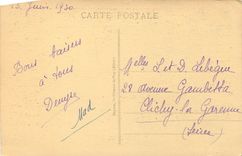 Juin 1930
CARTE POSTALE
Bons baisers
à tous
Denyse
Mad
Melles L et D. Lebègue
28 Avenue Gambetta
Clichy-la Garenne
(Seine)